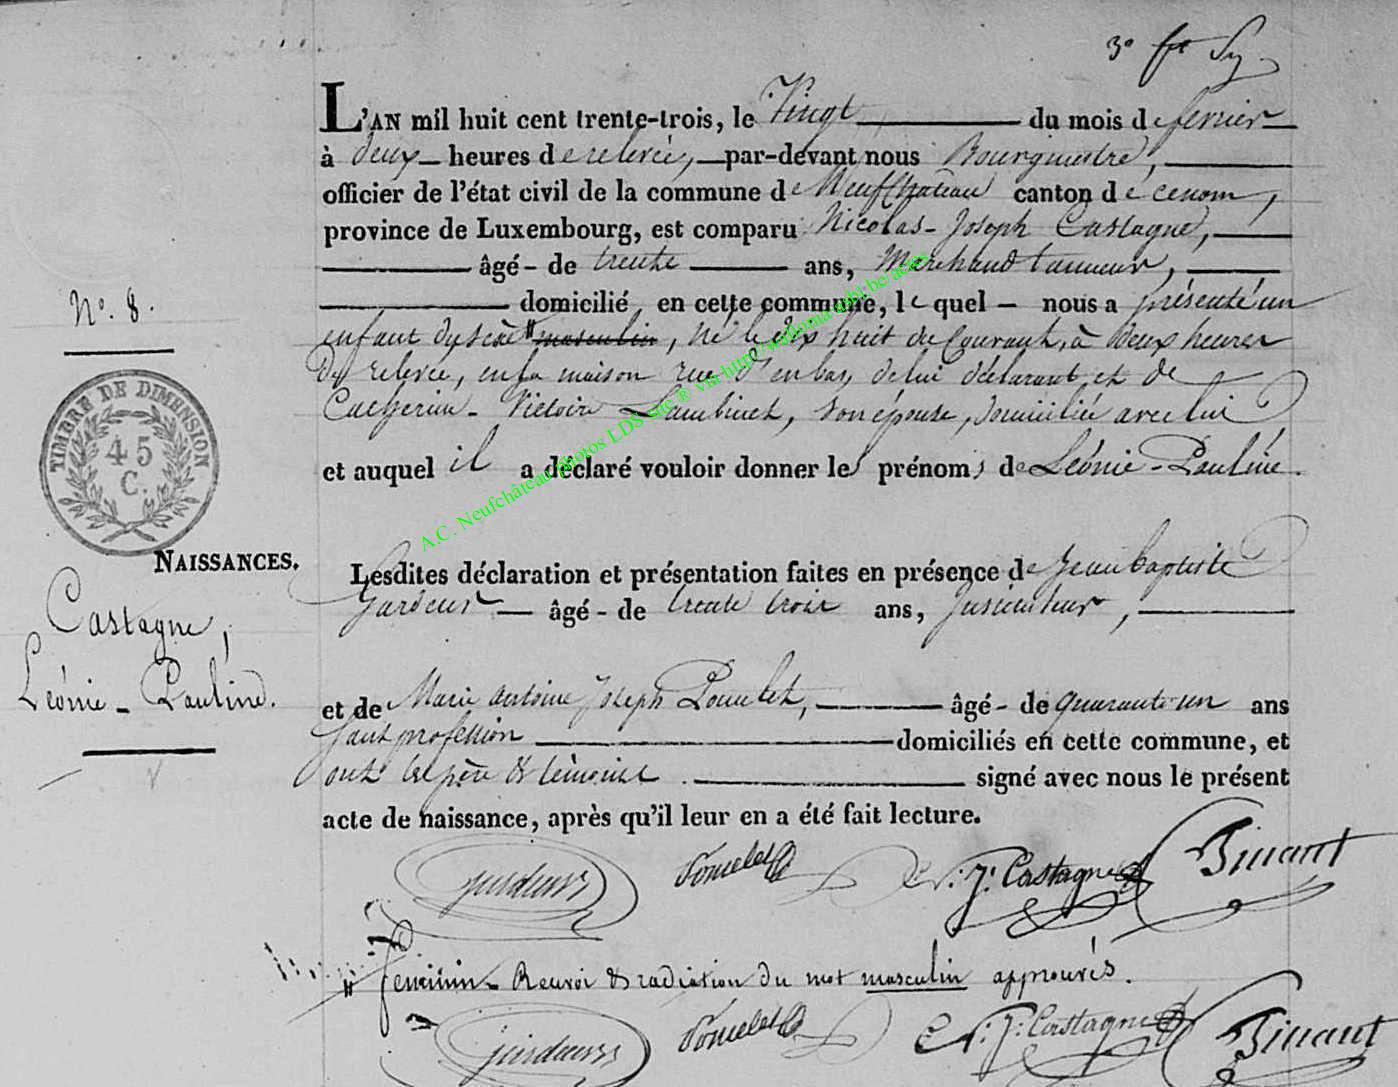 3e
L'AN mil huit cent trente-trois, le Vingt du mois de fevrier
à deux heures de relevée, par-devant nous Bourgmestre,
officier de l'état civil de la commune de Neufchateau canton de
province de Luxembourg, est comparu Nicolas-Joseph Castagne,
âgé - de trente ans, Marchand tanneur,
domicilié en cette commune, le quel - nous a présenté un
N°. 8.
enfant du sexe " masculin, né le dix huit du Courant, à deux heures
de relevée, en sa maison rue d'en bas, de lui déclarant et de
Catherine-Victoire Lambinet, son épouse, domiciliée avec lui
et auquel il a déclaré vouloir donner les prénoms de Léonie-Pauline.
TIMBRE DE DIMENSION
45
C.
A.C. Neufchâteau photos LDS site ® via http://wallonia-asbl.be/actes
NAISSANCES.
Castagne,
Léonie-Pauline.
Lesdites déclaration et présentation faites en présence de Jean baptiste
âgé - de trente trois ans,
et de Marie antoine Joseph Pomelet, âgé - de quarante un ans
sans profession domiciliés en cette commune, et
ont les père & témoins signé avec nous le présent
acte de naissance, après qu'il leur en a été fait lecture.
Pomelet N: J: Castagne Binant
" feminin - Renvoi & radiation du mot masculin approuvés.
Pomelet N: J: Castagne Binant